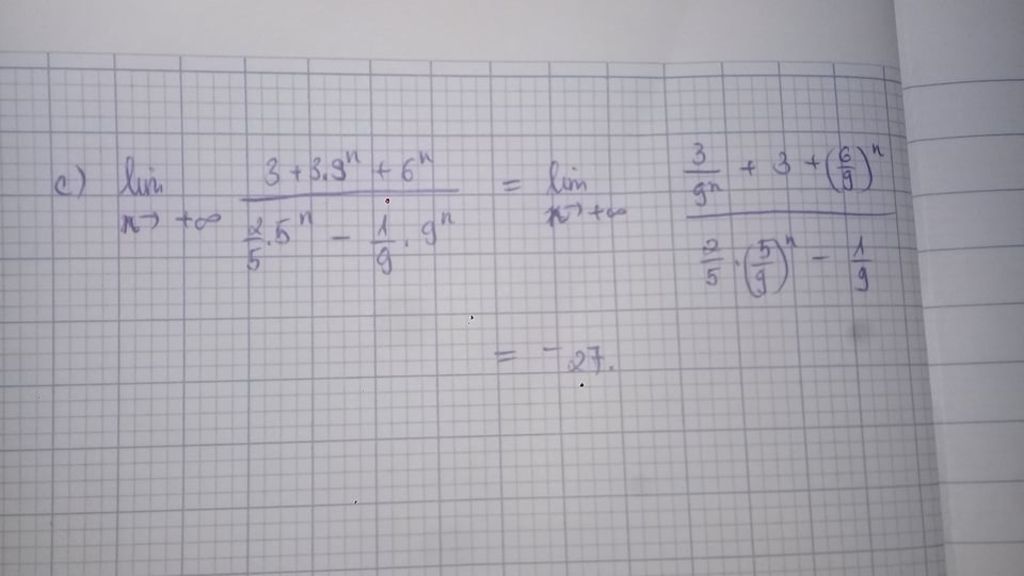 c) lim n→+∞ (3 + 3.9^n + 6^n) / (2/5 . 5^n − 1/9 . 9^n) = lim n→+∞ (3/9^n + 3 + (6/9)^n) / (2/5 . (5/9)^n − 1/9)
= −27.